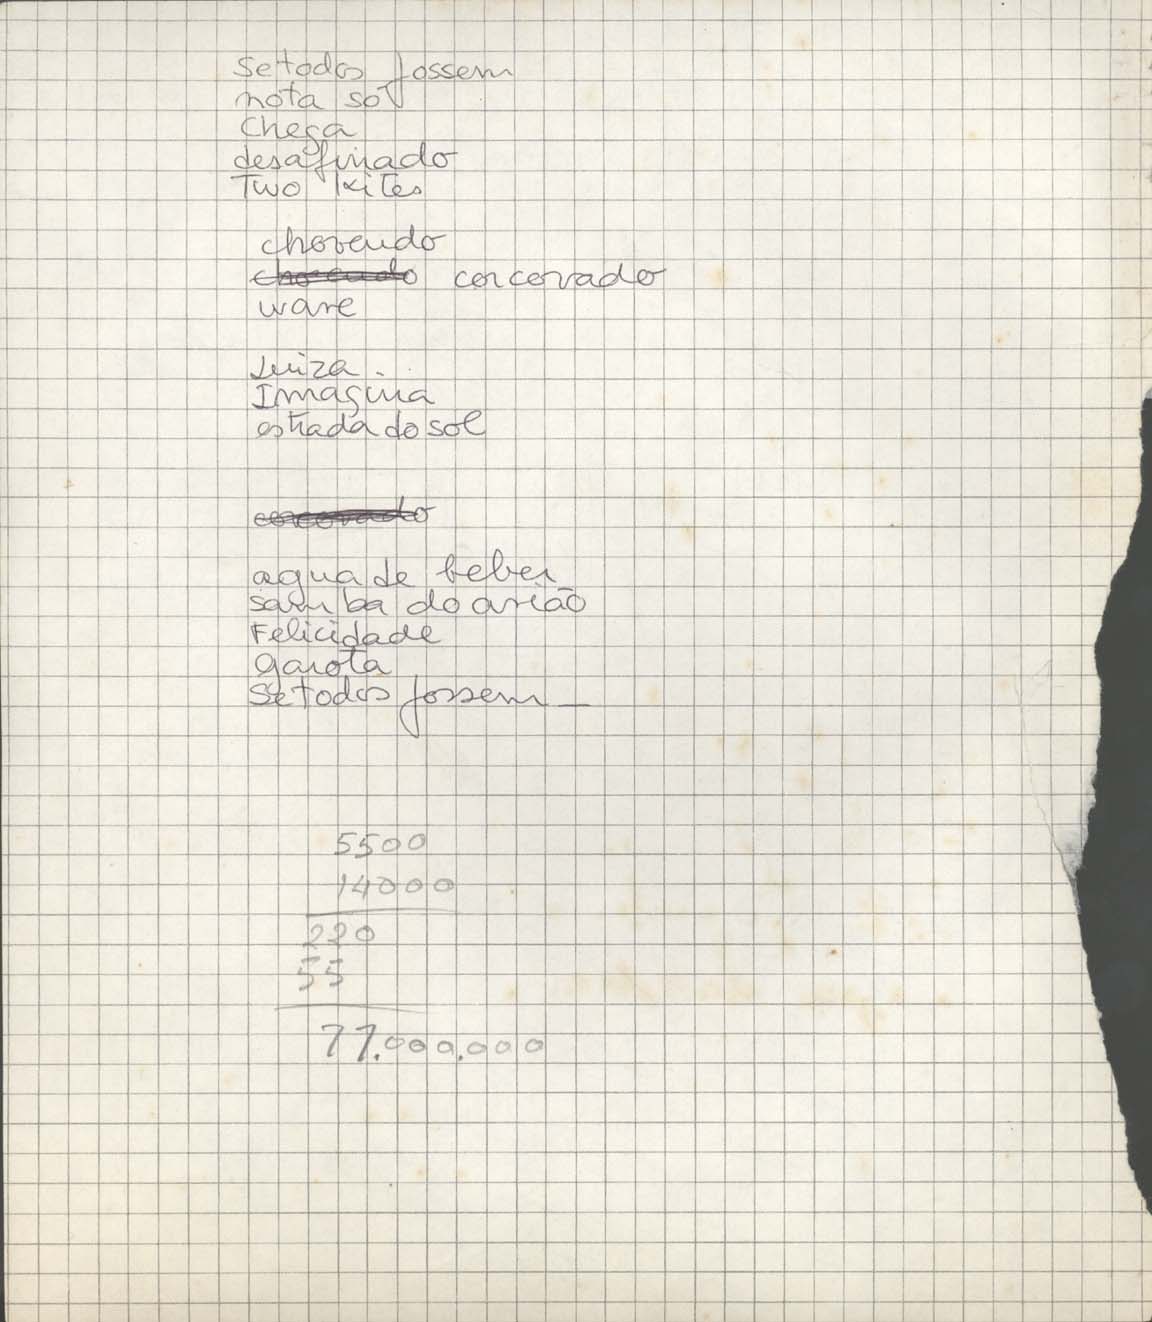 Se todos fossem
nota só
Chega
desafinado
Two Kites
chovendo
chovendo corcovado
wave
Luiza.
Imagina
estrada do sol
corcovado
agua de beber
samba do avião
Felicidade
garota
Se todos fossem _
5500
14000
220
55
77.000.000